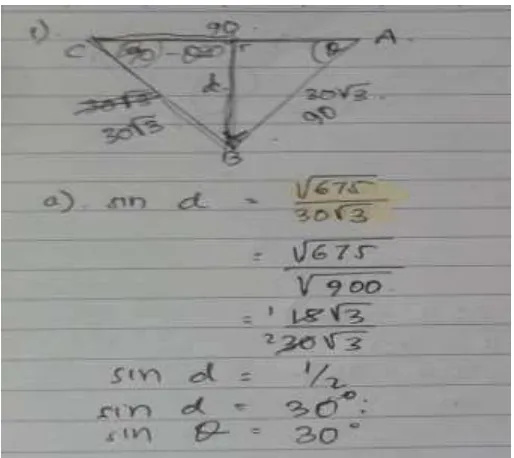 1). 90
C (90) - θ A
d 30√3
30√3 90
30√3
B
a). sin d = √675 / 30√3
= √675 / √900
= 1 15√3 / 2 30√3
sin d = 1/2
sin d = 30°:
sin θ = 30°